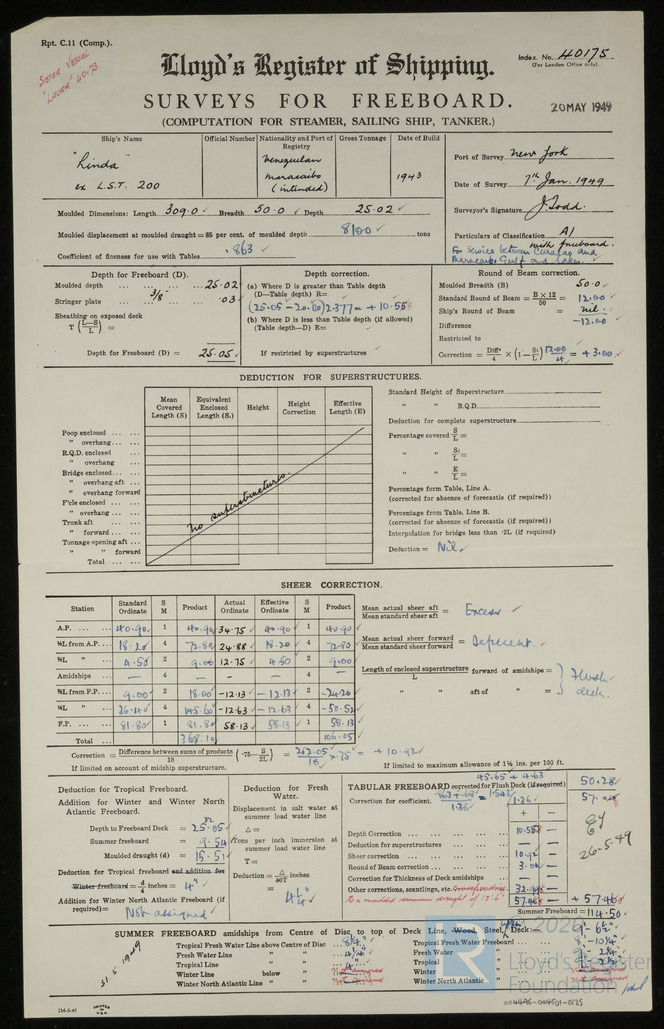 Rpt. C.11 (Comp.).
SISTER VESSEL
"LAURA" 40173.
Lloyd's Register of Shipping.
Index. No. 40175
(For London Office only).
SURVEYS FOR FREEBOARD.
20 MAY 1949
(COMPUTATION FOR STEAMER, SAILING SHIP, TANKER.)
Ship's Name
Official Number
Nationality and Port of Registry
Gross Tonnage
Date of Build
"Linda"
ex L.S.T. 200
Venezuelan
Maracaibo
(intended)
1943
Port of Survey New York
Date of Survey 7th Jan. 1949
Surveyor's Signature J. Todd.
Particulars of Classification A1
with freeboard.
For service between Curacao and
Maracaibo Gulf and Lakes.
Moulded Dimensions: Length 309.0 Breadth 50.0 Depth 25.02
Moulded displacement at moulded draught = 85 per cent. of moulded depth 8100 tons
Coefficient of fineness for use with Tables .863
Depth for Freeboard (D).
Moulded depth ... ... ... 25.02
Stringer plate 3/8 .03
Sheathing on exposed deck
T (L—S/L) =
Depth for Freeboard (D) = 25.05
Depth correction.
(a) Where D is greater than Table depth
(D—Table depth) R=
(25.05 - 20.60) 2.377 = + 10.58
(b) Where D is less than Table depth (if allowed)
(Table depth—D) R=
If restricted by superstructures
Round of Beam correction.
Moulded Breadth (B) 50.0
Standard Round of Beam = B × 12/50 = 12.00
Ship's Round of Beam = Nil
Difference -12.00
Restricted to
Correction = Diff/4 × (1 — S1/L) 12.00/4 = + 3.00
DEDUCTION FOR SUPERSTRUCTURES.
Mean Covered Length (S)
Equivalent Enclosed Length (S1)
Height
Height Correction
Effective Length (E)
Poop enclosed ... ...
" overhang ... ...
R.Q.D. enclosed ...
" overhang
Bridge enclosed... ...
" overhang aft ...
" overhang forward
F'cle enclosed ... ...
" overhang ... ...
Trunk aft ... ...
" forward ... ...
Tonnage opening aft ...
" " forward
Total ... ...
No superstructures.
Standard Height of Superstructure
" " R.Q.D.
Deduction for complete superstructure
Percentage covered S/L =
" " S1/L =
" " E/L =
Percentage from Table, Line A.
(corrected for absence of forecastle (if required))
Percentage from Table, Line B.
(corrected for absence of forecastle (if required))
Interpolation for bridge less than ·2L (if required)
Deduction = Nil
SHEER CORRECTION.
Station
Standard Ordinate
S M
Product
Actual Ordinate
Effective Ordinate
S M
Product
A.P. ... ... 40.90 1 40.90 34.75 40.90 1 40.90
⅙L from A.P. ... 18.20 4 72.80 24.88 18.20 4 72.80
⅓L " 4.50 2 9.00 12.75 4.50 2 9.00
Amidships ... — 4 — — — 4 —
⅓L from F.P. ... 9.00 2 18.00 -12.13 -12.13 2 -24.26
⅙L " ... 36.40 4 145.60 -12.63 -12.63 4 -50.52
F.P. ... ... 81.80 1 81.80 58.13 58.13 1 58.13
Total ... 368.10 106.05
Mean actual sheer aft / Mean standard sheer aft = Excess
Mean actual sheer forward / Mean standard sheer forward = Deficient.
Length of enclosed superstructure / L forward of amidships =
" " aft of " =
Flush deck.
Correction = Difference between sums of products/18 (·75 — S/2L) = 262.05/18 × .75 = + 10.92
If limited on account of midship superstructure.
If limited to maximum allowance of 1½ ins. per 100 ft.
Deduction for Tropical Freeboard.
Addition for Winter and Winter North
Atlantic Freeboard.
Ft.
Depth to Freeboard Deck = 25.05
Summer freeboard = 9.54
Moulded draught (d) = 15.51
Deduction for Tropical freeboard and addition for
Winter freeboard = d/4 inches = 4"
Addition for Winter North Atlantic Freeboard (if
required) = Not assigned
Deduction for Fresh Water.
Displacement in salt water at
summer load water line
Δ =
Tons per inch immersion at
summer load water line
T =
Deduction = Δ/40T inches
= 4¼"
45.65 + 4.63
TABULAR FREEBOARD corrected for Flush Deck (if required) 50.28
Correction for coefficient. .863 + .68/1.36 = 1.543/1.36
+ —
Depth Correction ... 10.58 —
Deduction for superstructures ... — —
Sheer correction ... 10.92 —
Round of Beam correction ... 3.00 —
Correction for Thickness of Deck amidships ... — —
Other corrections, scantlings, etc. Corresponding
to a moulded summer draught of 15'6"
57.46 — + 57.46
26-5-49
Summer Freeboard = 114.50
SUMMER FREEBOARD amidships from Centre of Disc to top of Deck Line, Wood, Steel, Deck: 9'-6½"
Tropical Fresh Water Line above Centre of Disc ... 8¼"
Fresh Water Line " " ... 4¼"
Tropical Line " " ... 4"
Winter Line below " ... Not assigned
Winter North Atlantic Line " " ... Not assigned
Tropical Fresh Water Freeboard ... 8'-10¼"
Fresh Water " 9'-2¼"
Tropical " 9'-2½"
Winter "
Winter North Atlantic "
31.5.1949
2M-5-45
© 2026
Lloyd's Register
Foundation
004496-004501-0125